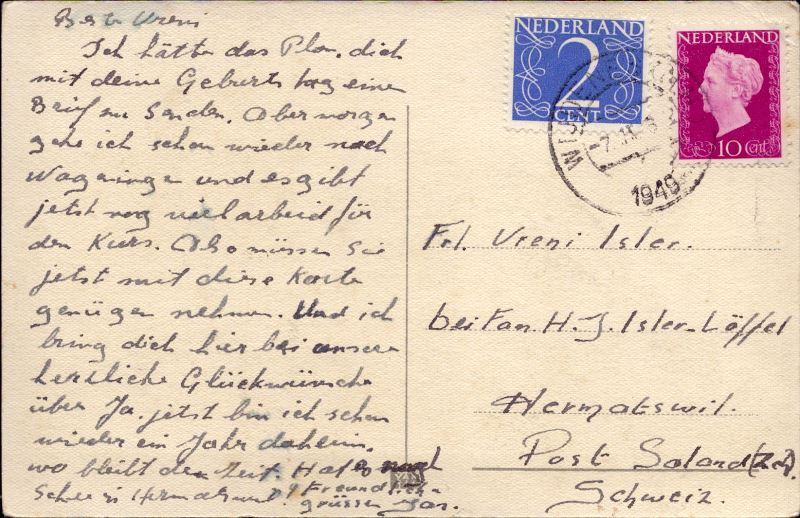 Beste Vreni
Ich hätte das Plan, dich
mit deine Geburtstag einen
Brief zu senden. Aber morgen
gehe ich schon wieder nach
Wageningen und es gibt
jetzt nog viel arbeid für
den Kurs. Also müssen Sie
jetzt mit diese Karte
genügen nehmen. Und ich
bring dich hier bei unsere
herzliche Glückwünsche
über. Ja, jetzt bin ich schon
wieder ein Jahr daheim,
wo bleibt den Zeit.
Freundlich
grüssen Jas.
NEDERLAND
2
CENT
NEDERLAND
10 cnt
1949
Frl. Vreni Isler.
bei Fam H. J. Isler-Löffel
Hermatswil.
Post Saland (Zch).
Schweiz.